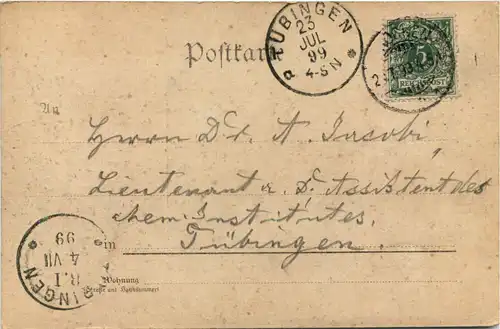 Postkarte
TÜBINGEN
23
JUL
99
4-5 N
a
5
REICHSPOST
An
Herrn Dr. A. Jacobi
Lieutenant a. D. Assistent des
chem. Institutes.
in Tübingen.
Wohnung
(Straße und Hausnummer)
BINGEN
R.I
4 VII
99